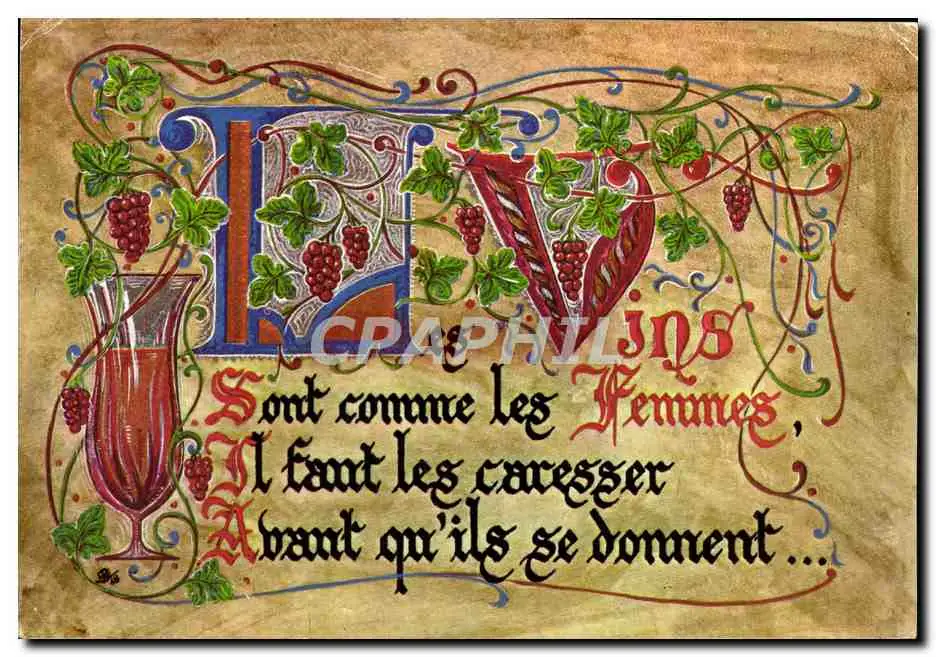 Les Vins
Sont comme les Femmes,
Il faut les caresser
Avant qu'ils se donnent...
CPAPHIL